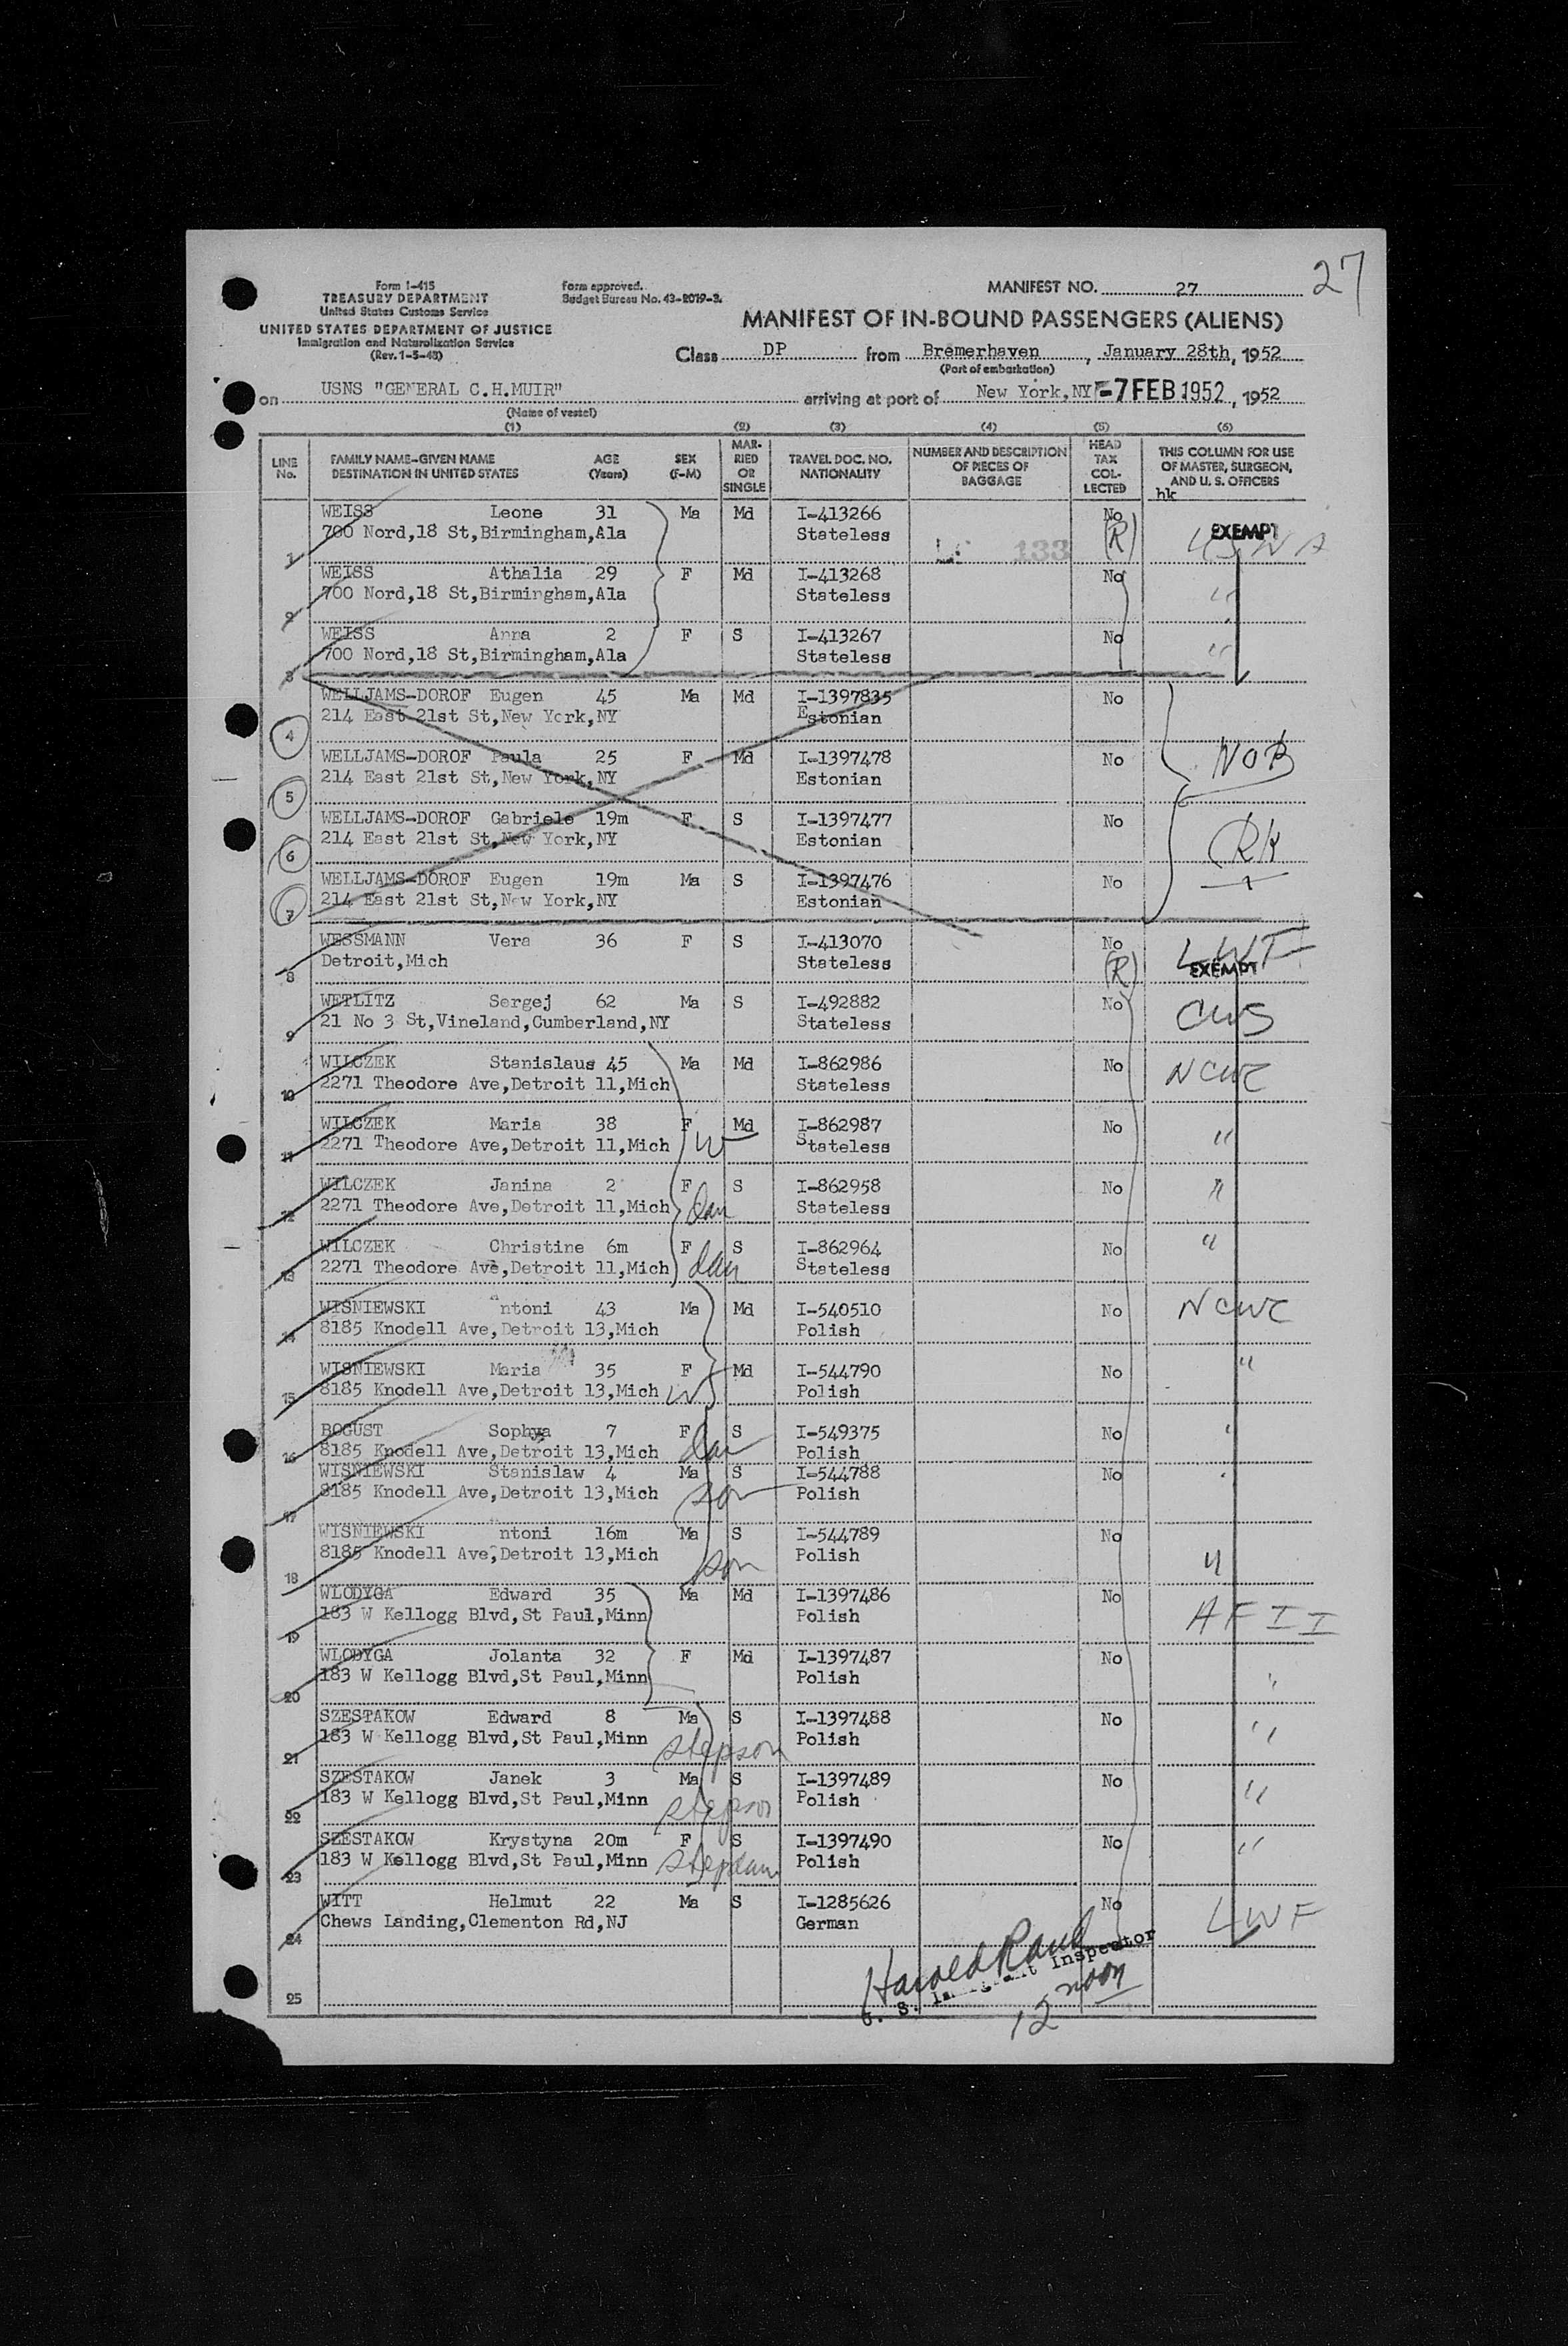 27
Form I-415
TREASURY DEPARTMENT
United States Customs Service
UNITED STATES DEPARTMENT OF JUSTICE
Immigration and Naturalization Service
(Rev. 1-5-48)
Form approved.
Budget Bureau No. 43-R019-3.
MANIFEST NO. 27
MANIFEST OF IN-BOUND PASSENGERS (ALIENS)
Class DP from Bremerhaven, January 28th, 1952
(Port of embarkation)
on USNS "GENERAL C.H.MUIR" arriving at port of New York,NY -7 FEB 1952, 1952
(Name of vessel)
(1) (2) (3) (4) (5) (6)
LINE No. FAMILY NAME-GIVEN NAME DESTINATION IN UNITED STATES AGE (Years) SEX (F-M) MARRIED OR SINGLE TRAVEL DOC. NO. NATIONALITY NUMBER AND DESCRIPTION OF PIECES OF BAGGAGE HEAD TAX COLLECTED THIS COLUMN FOR USE OF MASTER, SURGEON, AND U. S. OFFICERS
hk
WEISS Leone 31 Ma Md I-413266 No EXEMPT
1 700 Nord,18 St,Birmingham,Ala Stateless 133 (R) USNA
WEISS Athalia 29 F Md I-413268 No
2 700 Nord,18 St,Birmingham,Ala Stateless "
WEISS Anna 2 F S I-413267 No
3 700 Nord,18 St,Birmingham,Ala Stateless "
WELLJAMS-DOROF Eugen 45 Ma Md I-1397835 No
4 214 East 21st St,New York,NY Estonian
WELLJAMS-DOROF Paula 25 F Md I-1397478 No NOB
5 214 East 21st St,New York,NY Estonian
WELLJAMS-DOROF Gabriele 19m F S I-1397477 No
6 214 East 21st St,New York,NY Estonian RK
WELLJAMS-DOROF Eugen 19m Ma S I-1397476 No
7 214 East 21st St,New York,NY Estonian
WESSMANN Vera 36 F S I-413070 No LWF
8 Detroit,Mich Stateless (R) EXEMPT
WETLITZ Sergej 62 Ma S I-492882 No
9 21 No 3 St,Vineland,Cumberland,NY Stateless CWS
WILCZEK Stanislaus 45 Ma Md I-862986 No
10 2271 Theodore Ave,Detroit 11,Mich Stateless NCWC
WILCZEK Maria 38 F Md I-862987 No
11 2271 Theodore Ave,Detroit 11,Mich W Stateless "
WILCZEK Janina 2 F S I-862958 No
12 2271 Theodore Ave,Detroit 11,Mich dau Stateless "
WILCZEK Christine 6m F S I-862964 No "
13 2271 Theodore Ave,Detroit 11,Mich dau Stateless
WISNIEWSKI Antoni 43 Ma Md I-540510 No NCWC
14 8185 Knodell Ave,Detroit 13,Mich Polish
WISNIEWSKI Maria 35 F Md I-544790 No "
15 8185 Knodell Ave,Detroit 13,Mich W Polish
BOGUST Sophya 7 F S I-549375 No "
16 8185 Knodell Ave,Detroit 13,Mich dau Polish
WISNIEWSKI Stanislaw 4 Ma S I-544788 No "
17 8185 Knodell Ave,Detroit 13,Mich son Polish
WISNIEWSKI Antoni 16m Ma S I-544789 No
18 8185 Knodell Ave,Detroit 13,Mich son Polish "
WLODYGA Edward 35 Ma Md I-1397486 No
19 183 W Kellogg Blvd,St Paul,Minn Polish AFII
WLODYGA Jolanta 32 F Md I-1397487 No
20 183 W Kellogg Blvd,St Paul,Minn Polish "
SZESTAKOW Edward 8 Ma S I-1397488 No
21 183 W Kellogg Blvd,St Paul,Minn stepson Polish "
SZESTAKOW Janek 3 Ma S I-1397489 No
22 183 W Kellogg Blvd,St Paul,Minn stepson Polish "
SZESTAKOW Krystyna 20m F S I-1397490 No
23 183 W Kellogg Blvd,St Paul,Minn stepdau Polish "
WITT Helmut 22 Ma S I-1285626 No
24 Chews Landing,Clementon Rd,NJ German LWF
25
Harold Raub
U. S. Immigrant Inspector
12 noon